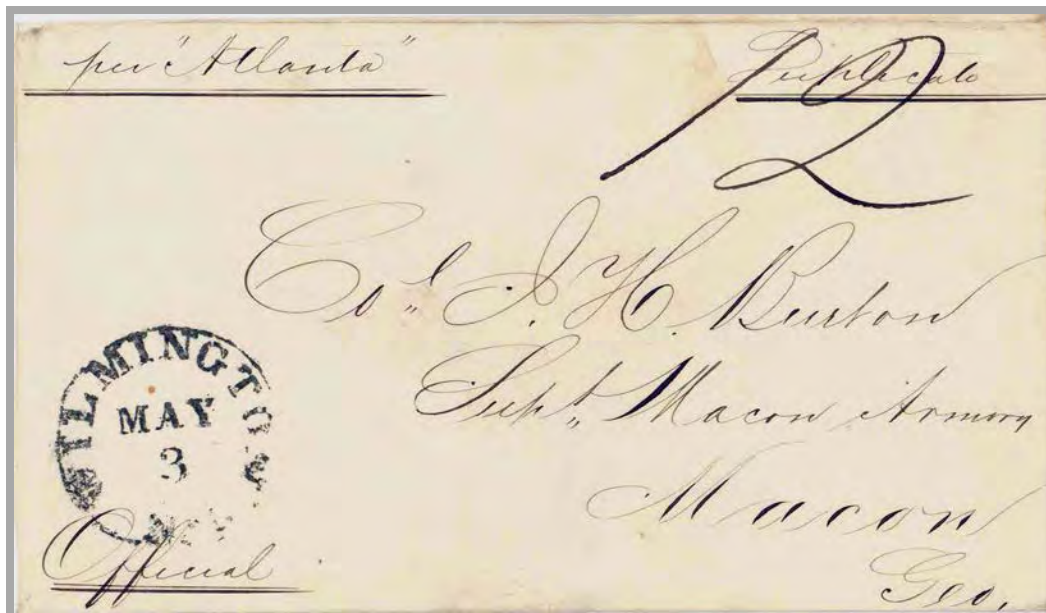 per "Atlanta"
Duplicate
12
Co" J. H. Burton
Supt" Macon Armory
Macon
Geo.
WILMINGTON
MAY
3
Official